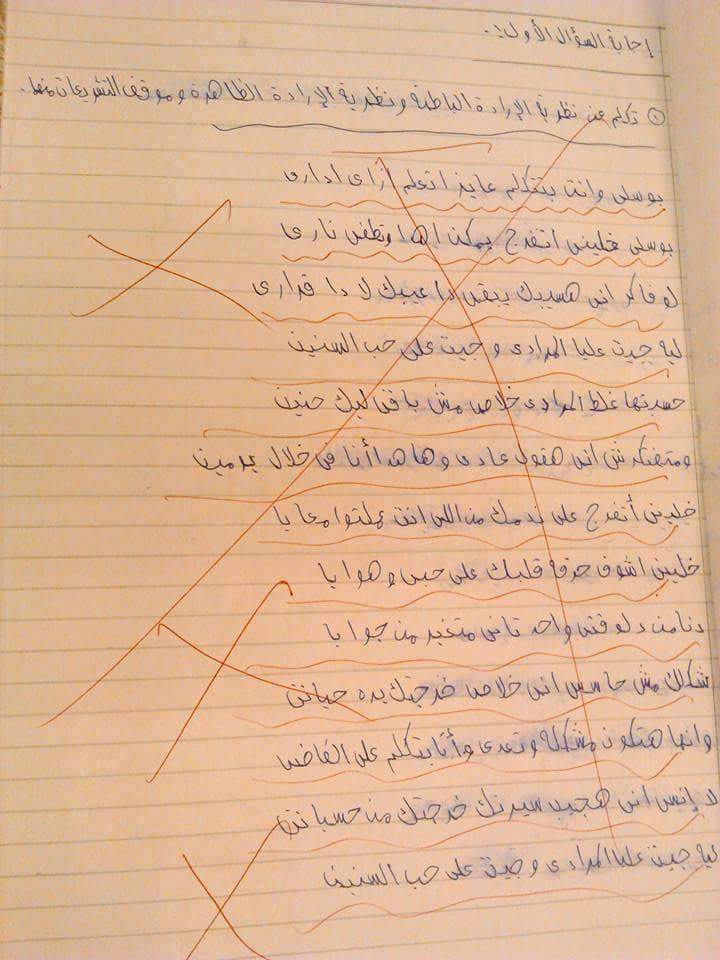 إجابة السؤال الأول:-
① تكلم عن نظرية الإرادة الباطنة ونظرية الإرادة الظاهرة وموقف التشريعات منها.
بوسلى وانت بتتكلم عايز اتعلم ازاى ادارى
بوسلى خلينى اتفرج يمكن اهدا وتطفى نارى
لو فاكر انى هسيبك يبقى دا عيبك لا دا قرارى
ليه جيت عليا المرادى وجيت على حب السنين
حسبتها غلط المرادى خلاص مش باقى ليك حنين
ومتفتكرش انى هقول عادى وهاهدا أنا فى خلال يومين
خلينى أتفرج على ندمك من اللى انت عملتوا معايا
خلينى اشوف حرقة قلبك على حبى وهوايا
دنا من دلوقتى واحد تانى متغير من جوايا
شكلك مش حاسس انى خلاص خرجتك بره حياتى
وانها هتكون مشكلة وتعدى وأنا بتكلم على الفاضى
لا إنسى انى هجيب سيرتك خرجتك من حسباتى
ليه جيت عليا المرادى وجيت على حب السنين